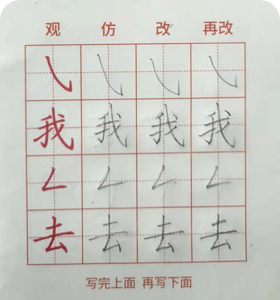 观 仿 改 再改
㇏ ㇏ ㇏ ㇏
我 我 我 我
𠃋 𠃋 𠃋 𠃋
去 去 去 去
写完上面 再写下面